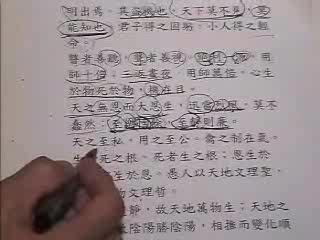 明出焉。其盜機也，天下莫不見，莫
能知也。君子得之固躬，小人得之輕
命。
瞽者善聽，聾者善視。絕利一源，用
師十倍。三返晝夜，用師萬倍。心生
於物死於物，機在目。
天之無恩而大恩生，迅雷烈風，莫不
蠢然。至樂性餘，至靜則廉。
天之至私，用之至公。禽之制在氣。
生 死之根。死者生之根。恩生於
生於恩。愚人以天地文理聖，
物文理哲。
靜，故天地萬物生；天地之
陰陽勝。陰陽相推而變化順